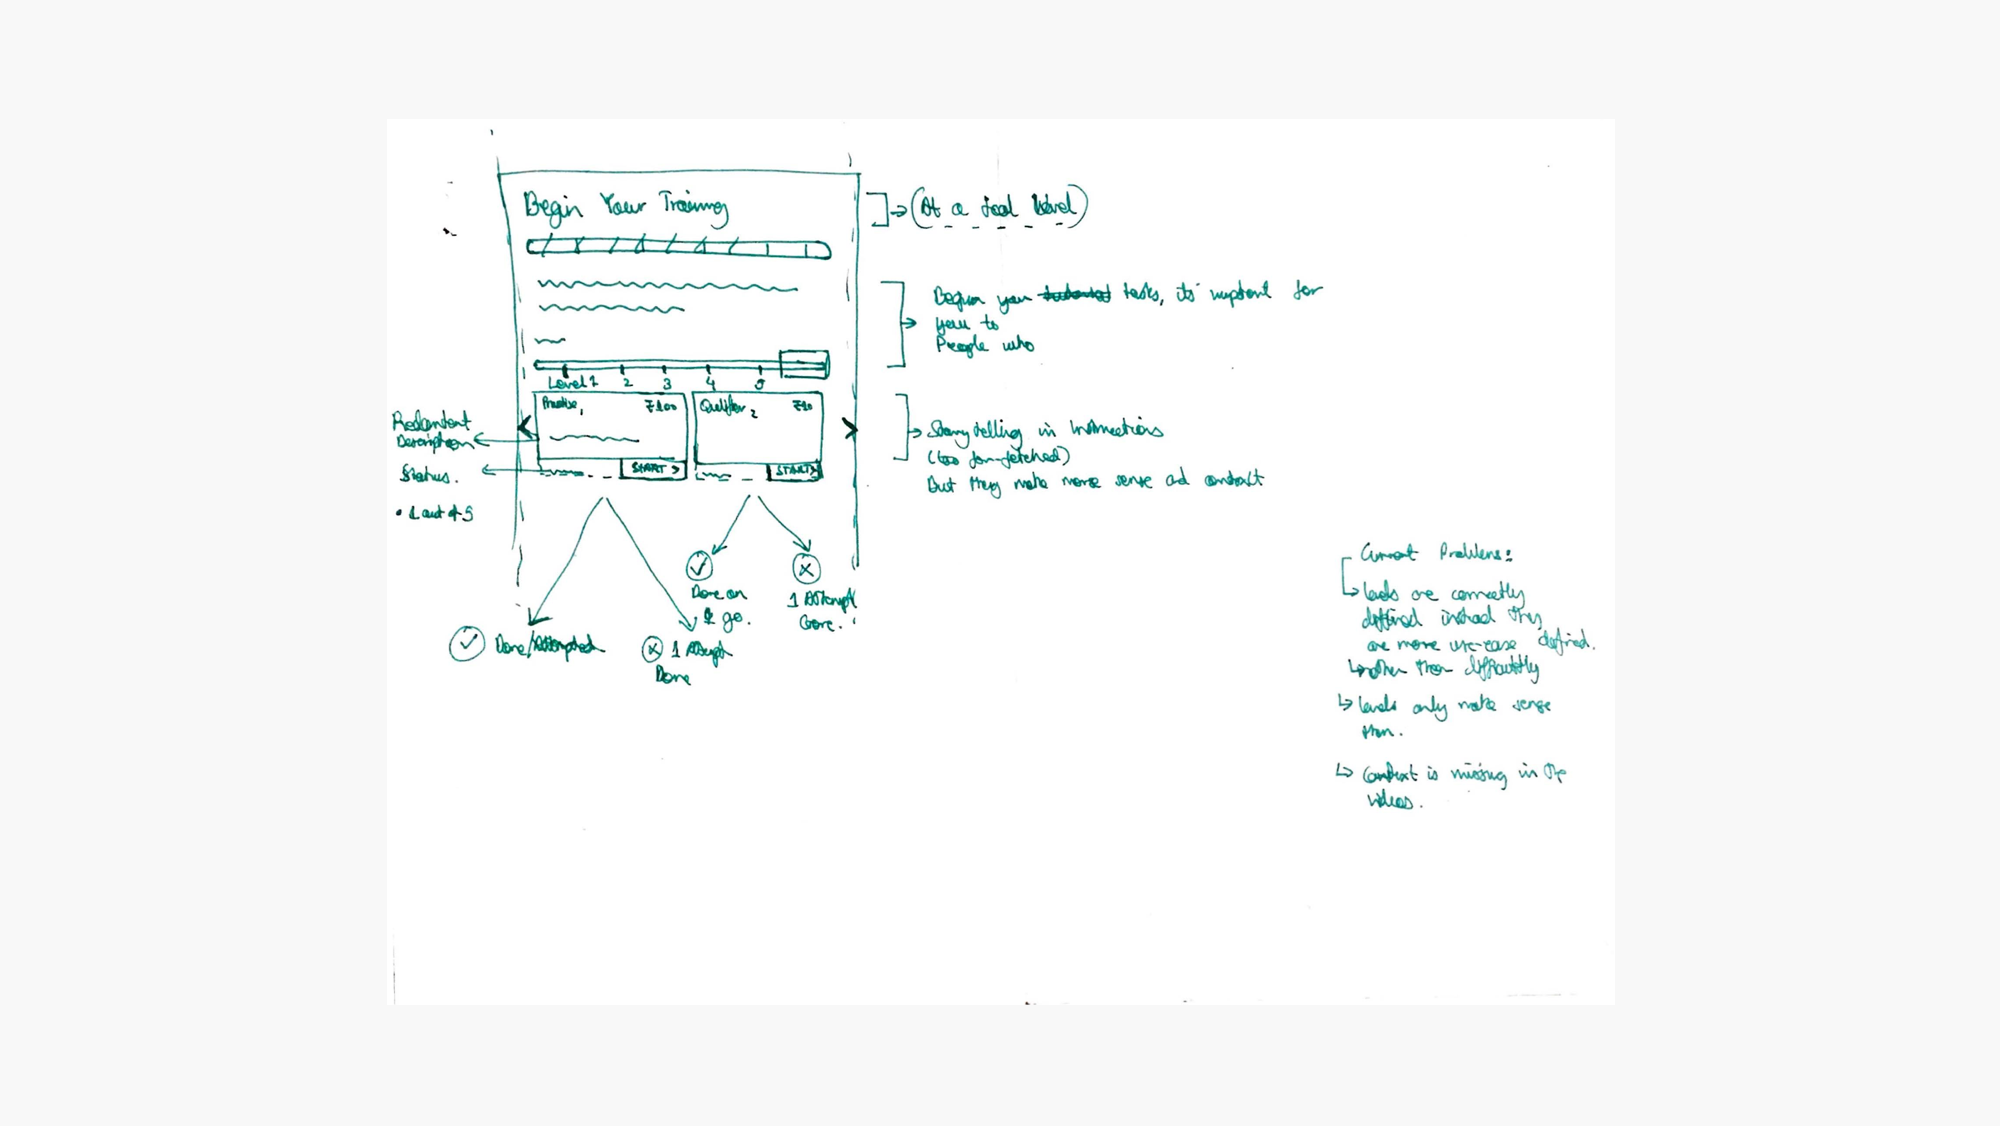 Begin Your Training
(At a tool level)
Begin your tasks, its important for
you to
People who
Level 1 2 3 4 5
Practise, ₹100
Qualifier 2 ₹10
START >
START >
Redundant
Description
Status.
• 1 out of 5
Storytelling in Instructions
(too far-fetched)
But they make more sense and
Done on
go.
1 Attempt
Gone.
Done/Attempted
1 Attempt
Done
Current Problems:
levels are correctly
defined instead they
are more use-case defined.
rather than difficultly
levels only make sense
then.
Context is missing in the
videos.